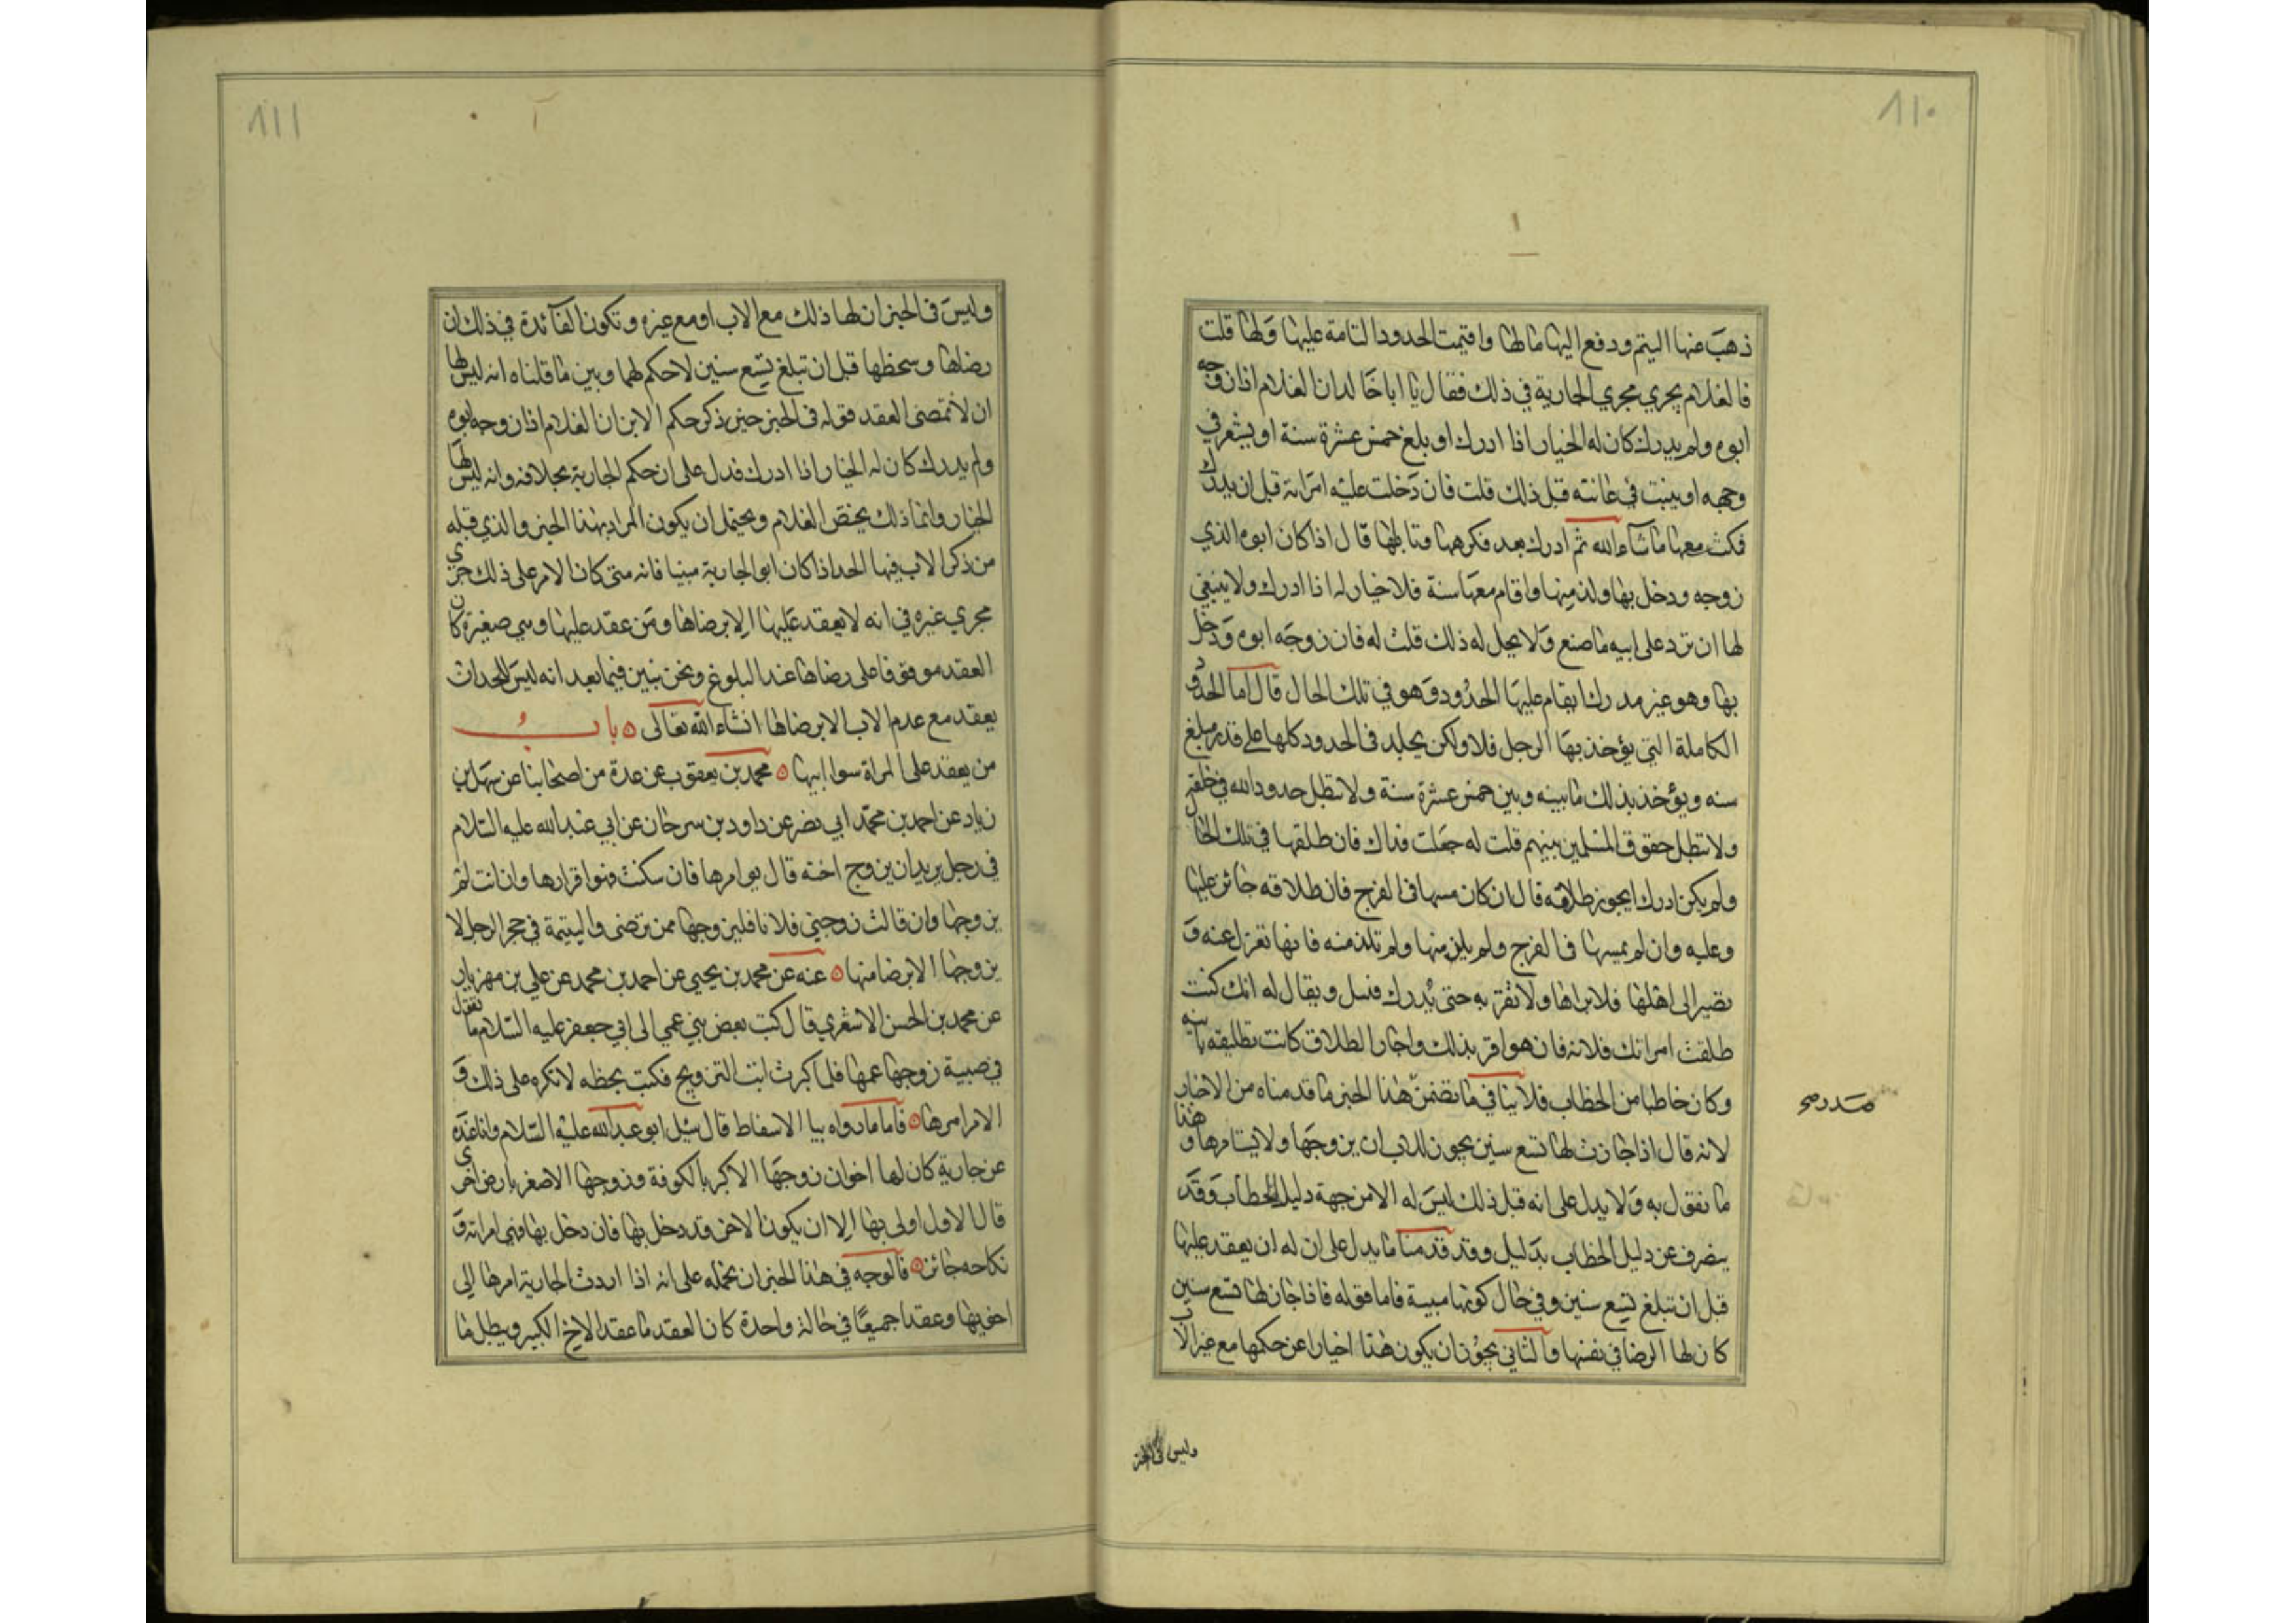 ٨١٠
ذهب عنها اليتم ودفع اليها مالها واقيمت الحدود التامة عليها ولها قلت
فالغلام يجري مجري الجارية في ذلك فقال يا ابا خالد ان الغلام اذا زوجه
ابوه ولم يدرك كان له الخيار اذا ادرك او بلغ خمس عشرة سنة او يشعر في
وجهه او ينبت في عانته قبل ذلك قلت فان دخلت عليه امراته قبل ان يدرك
فكث معها ما شاء الله ثم ادرك بعد فكرهها وتاباها قال اذا كان ابوه الذي
زوجه ودخل بها ولذ منها واقام معها سنة فلا خيار له اذا ادرك ولا ينبغي
لها ان ترد على ابيه ما صنع ولا يحل له ذلك قلت له فان زوجه ابوه ودخل
بها وهو غير مدرك ايقام عليها الحدود وهو في تلك الحال قال اما الحدود
الكاملة التي يؤخذ بها الرجل فلا ولكن يجلد في الحدود كلها على قدر مبلغ
سنه ويؤخذ بذلك ما بينه وبين خمس عشرة سنة ولا تبطل حدود الله في خلقه
ولا تبطل حقوق المسلمين بينهم قلت له جعلت فداك فان طلقها في تلك الحال
ولم يكن ادرك ايجوز طلاقه قال ان كان مسها في الفرج فان طلاقه جائز عليها
وعليه وان لم يمسها في الفرج ولم يلذ منها ولم تلذ منه فانها تعزل عنه و
تصير الى اهلها فلا يراها ولا تقربه حتى يدرك فيسل ويقال له انك كنت
طلقت امراتك فلانة فان هو اقر بذلك واجاز الطلاق كانت تطليقة بائنه
وكان خاطبا من الخطاب فلا ينافي ما تضمن هذا الخبر ما قدمناه من الاخبار
لانه قال اذا جازت لها تسع سنين يجوز للاب ان يزوجها ولا يستامرها وهذا
ما نقول به ولا يدل على انه قبل ذلك ليس له الا من جهة دليل الخطاب وقد
ينصرف عن دليل الخطاب بدليل وقد قدمنا ما يدل على ان له ان يعقد عليها
قبل ان تبلغ تسع سنين وفي حال كونها صبية فاما قوله فاذا جاز لها تسع سنين
كان لها الرضا في نفسها والثاني يجوز ان يكون هذا اخبارا عن حكمها مع غير الاب
وليس في الخبر
٨١١
وليس في الخبر ان لها ذلك مع الاب او مع غيره وتكون الفائدة في ذلك ان
رضاها وسخطها قبل ان تبلغ تسع سنين لا حكم لهما وبين ما قلناه انه ليس لها
ان لا تمضى العقد قوله في الخبر حين ذكر حكم الابن ان الغلام اذا زوجه ابوه
ولم يدرك كان له الخيار اذا ادرك فدل على ان حكم الجارية بخلافه وانه ليس لها
الخيار وانما ذلك يختص الغلام ويحتمل ان يكون المراد بهذا الخبر والذي قبله
من ذكر الاب فيها الحد اذا كان ابو الجارية ميتا فانه متى كان الامر على ذلك جرى
مجري غيره في انه لا يعقد عليها الا برضاها ومن عقد عليها وهي صغيرة كان
العقد موقوفا على رضاها عند البلوغ ونحن نبين فيما بعد انه ليس للجد ان
يعقد مع عدم الاب الا برضاها انشاء الله تعالى ٥ باب
من يعقد على المراة سوا ابيها ٥ محمد بن يعقوب عن عدة من اصحابنا عن سهل بن
زياد عن احمد بن محمد ابي نصر عن داود بن سرحان عن ابي عبد الله عليه السلام
في رجل يريد ان يزوج اخته قال يوامرها فان سكتت فهو اقرارها وان ابت لم
يزوجها وان قالت زوجني فلانا فليزوجها ممن ترضى واليتيمة في حجر الرجل لا
يزوجها الا برضا منها ٥ عنه عن محمد بن يحيى عن احمد بن محمد عن علي بن مهزيار
عن محمد بن الحسن الاشعري قال كتب بعض بني عمي الى ابي جعفر عليه السلام ما تقول
في صبية زوجها عمها فلما كبرت ابت التزويج فكتب بخطه لا تكره على ذلك و
الامر امرها ٥ فاما ما رواه بيا الاسفاط قال سئل ابو عبد الله عليه السلام وانا عنده
عن جارية كان لها اخوان زوجها الاكبر بالكوفة وزوجها الاصغر بارض اخرى
قال الاول اولى بها الا ان يكون الاخر قد دخل بها فان دخل بها فهي امراته و
نكاحه جائز ٥ فالوجه في هذا الخبر ان نحمله على انه اذا اردت الجارية امرها الى
اخويها وعقدا جميعا في حالة واحدة كان العقد ما عقد الاخ الكبير ويبطل ما